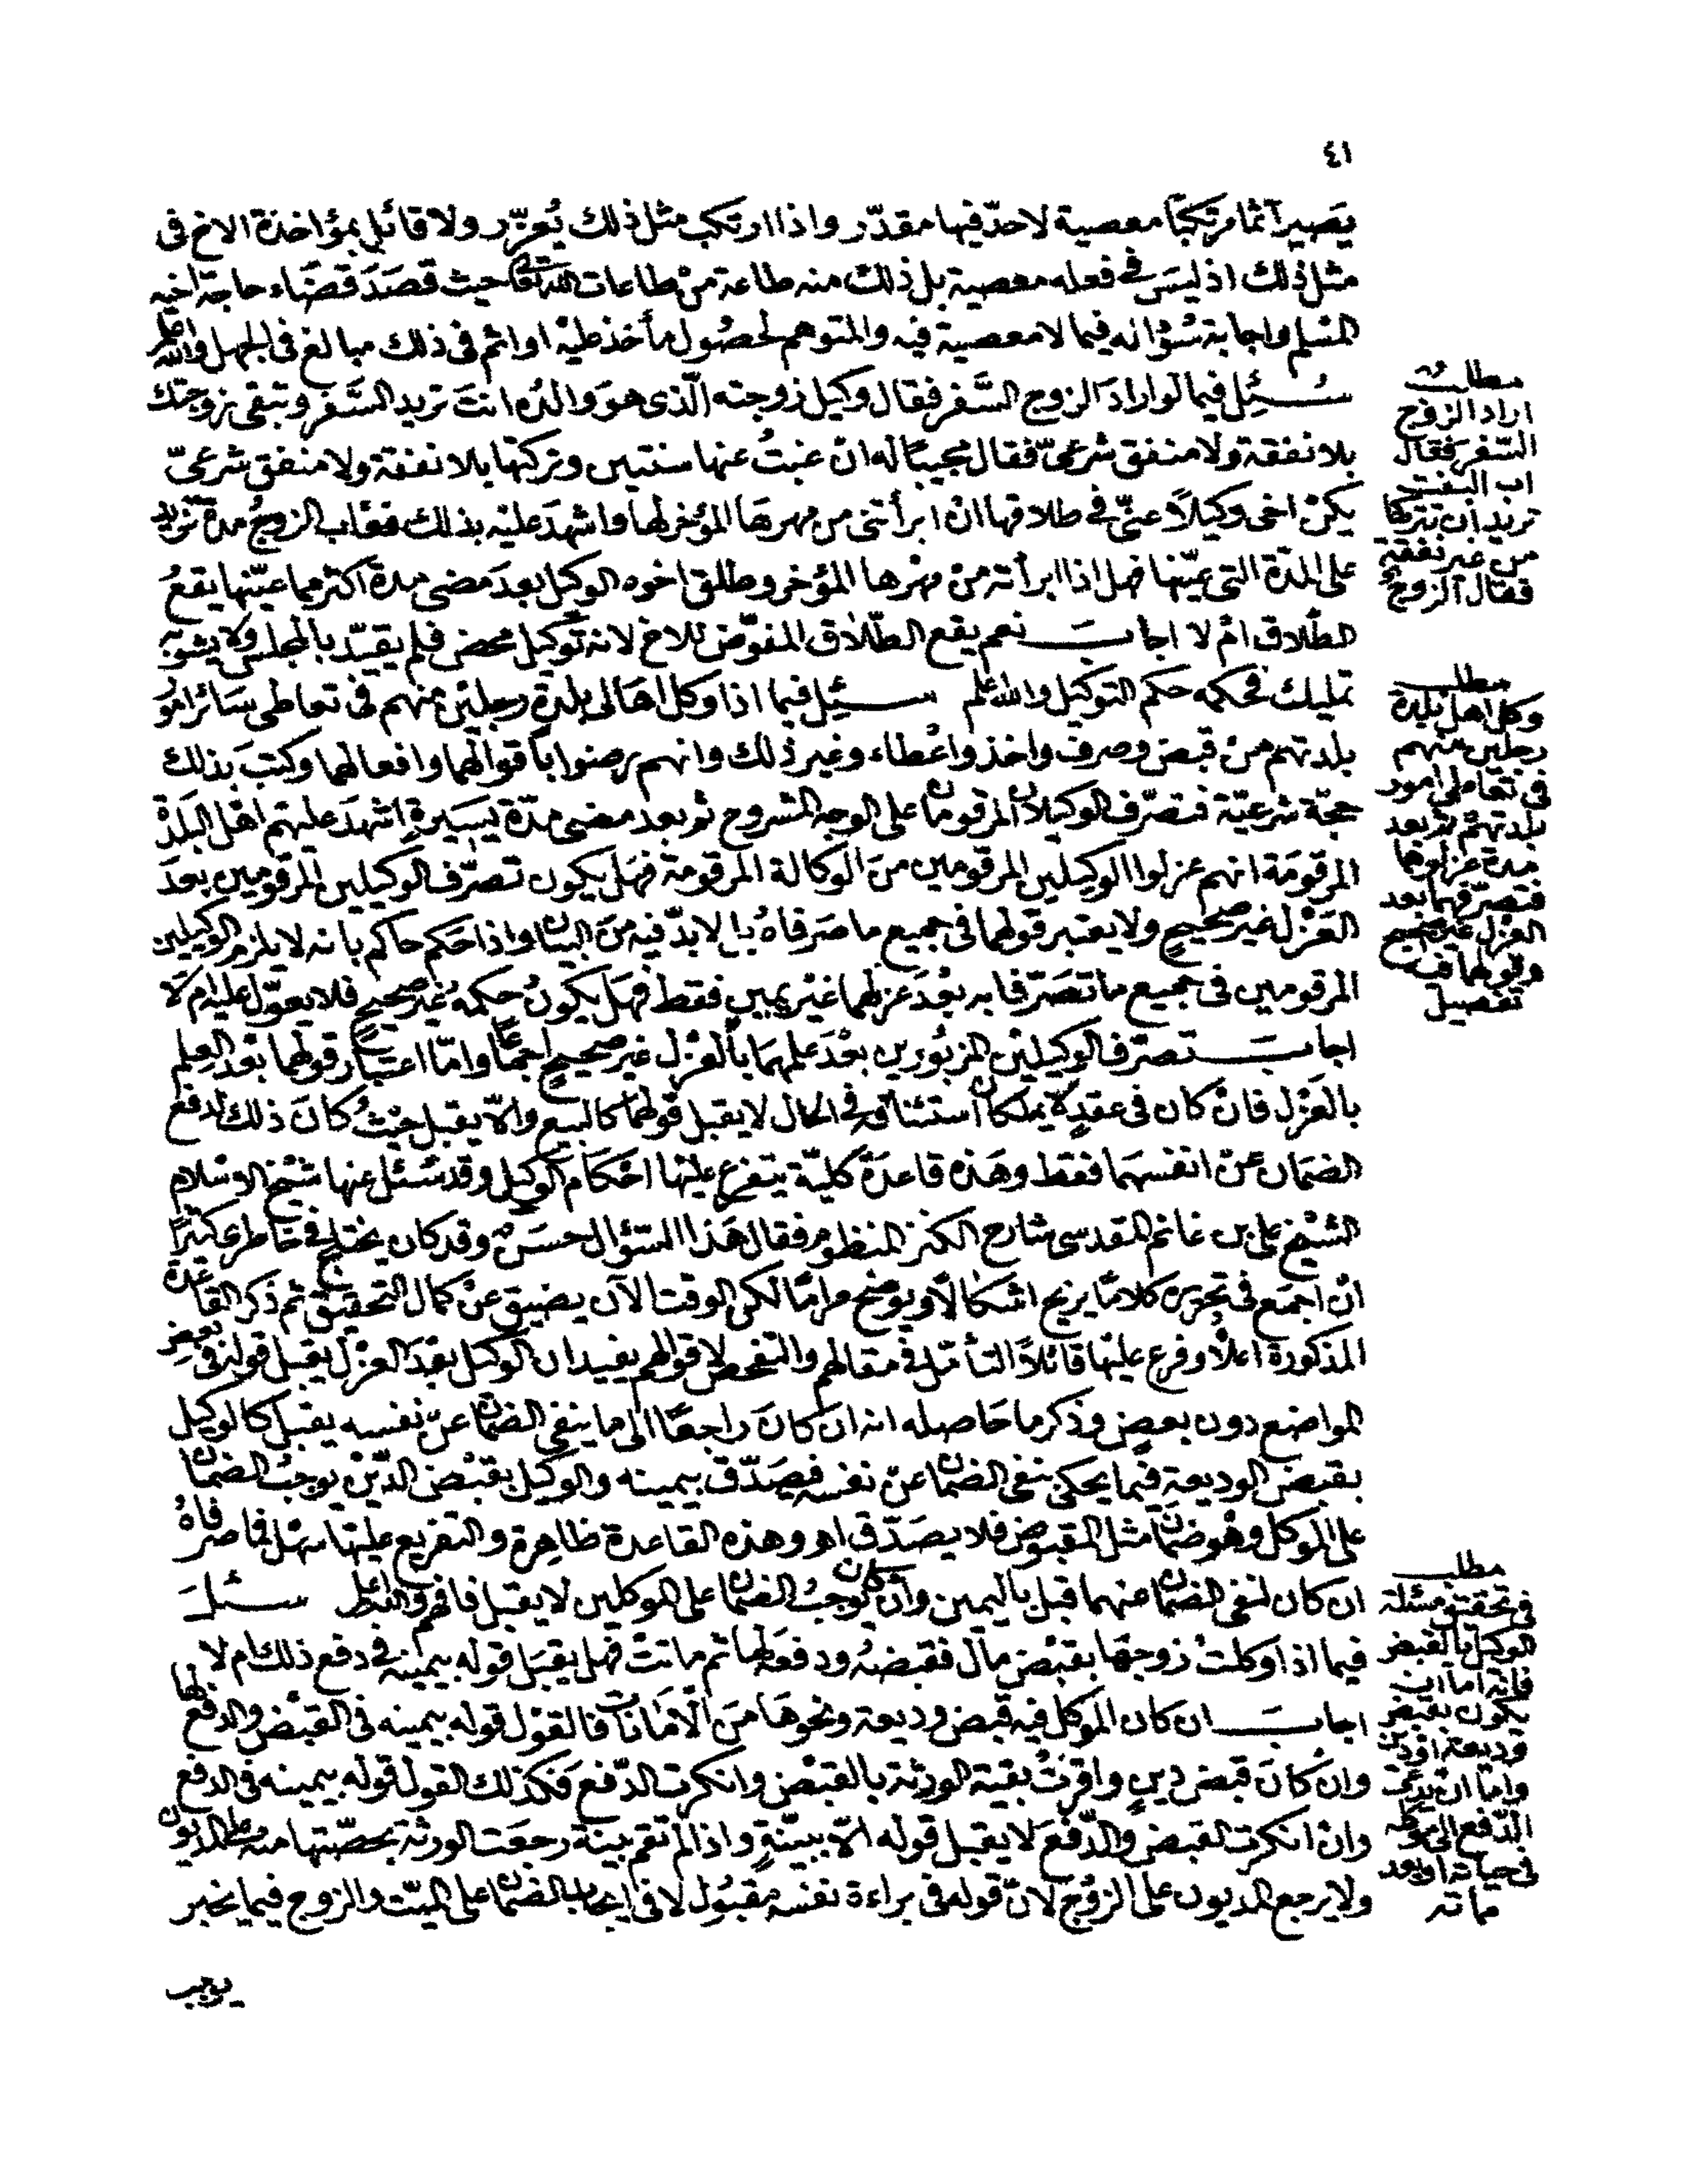 ٤١
يصير آثما مرتكبًا معصية لا حدّ فيها مقدّر واذا ارتكب مثل ذلك يُعزّر ولا قائل بمؤاخذة الاخ فى
مثل ذلك اذ ليسَ فى فعله معصية بل ذلك منه طاعة منْ طاعات الله تعالى حيث قصَدَ قضَاء حاجة اخيه
المسلم واجابة سُؤاله فيما لا معصية فيه والمتوهم لحصُول مأخذ عليْه او اثم فى ذلك مبالغ فى الجهل والله اعلم
سُئِل فيما لو ارادَ الزوج السَّفر فقال وكيل زوجته الّذى هوَ والدُه انتَ تريد السَّفر وتبقى زوجتك
بلا نفقة ولا منفق شرعىّ فقال مجيبًا له انْ غبتُ عنها سنتين وتركتها بلا نفقة ولا منفق شرعىّ
يكنْ اخى وكيلاً عنّى فى طلاقها انْ ابرأتنى من مهرهَا المؤخر لها واشهدَ عليْه بذلك فغاب الزوجُ مدة تزيد
على المدّة التى عيّنها فهل اذا ابرأته منْ مهْرها المؤخر وطلق اخوه الوكيل بعدَ مضى مدة اكثر مما عيّنها يقعُ
الطّلاق امْ لا اجابَ نعم يقع الطّلاق المفوّض للاخ لانه توكيل محض فلم يقيّد بالمجلس ولا يشوبه
تمليك فحكمه حكم التوكيل والله اعلم سئِل فيما اذا وكل اهَالى بلدةٍ رجليْن منهم فى تعاطى سَائر امُور
بلدتهم منْ قبض وصرف واخذ واعْطاء وغير ذلك وانهم رضوا باَقوالهما وافعالهما وكتبَ بذلك
حجّة شرعيّة فتصرّف الوكيلان المرقومان على الوجه المشروح ثم بعد مضى مدّة يسَيرةٍ اشهدَ عليهم اهْل البَلدْة
المرقومَة انهم عزلوا الوكيلين المرقومين منَ الوكالة المرقومة فهَل يكون تصرّف الوكيلين المرقومين بعدَ
العَزْل غيْر صحِيحٍ ولا يعتبر قولهما فى جميع ما صَرفاهُ بل لا بدّ فيه منَ البيان واذا حَكم حاكم بانه لا يلزم الوكيلين
المرقومين فى جميع ما تصَرّفا به بعْدَ عزلهما غيْر يمين فقط فهَل يكونُ حكمهُ غيْر صحيحٍ فلا يعوّل عليه ام لاَ
اجابَ تصرّف الوكيليْن المزبُورين بعْدَ علمهمَا باَلعَزْل غير صحيح اجماعًا وامّا اعتبار قولهما بعْد العِلم
بالعَزْل فانْ كان فى عقدٍ يملكان استئنافه فى الحال لا يقبل قولهما كالبيع والاّ يقبل حيْثُ كانَ ذلك لدفع
الضمَان عنْ انفسهمَا فقط وهَذه قاعدَة كليّة يتفرع عليْها احْكام الوكيل وقد سُئل عنها شيْخ الاسْلام
الشيْخ على بن غانم المقدسى شارح الكنز المنظوم فقال هَذا السّؤال حسَنٌ وقد كان يختلج فى خاطرى كثيرًا
انْ اجمَع فى تحريره كلامًا يزيح اشكالاً ويوضح مرامًا لكن الوقت الآن يضيق عنْ كمال التحقيق ثم ذكر القاعدة
المذكورة اعلاه وفرع عليْها قائلاً التأمّل فى مقالهم والتفحص لاقوالهم يفيد ان الوكيل بعْدَ العزْل يقبَل قوله فى بعض
المواضع دون بعضٍ وذكر ما حَاصله انه ان كانَ راجعًا الى ما ينفى الضمان عنْ نفسه يقبل كالوكيل
بقبض الوديعة فيما يحكى نفى الضمان عنْ نفسه فيصَدّق بيمينه والوكيل بقبْض الدّيْن يوجبُ الضمان
على الموكل وهْو ضمان مثل المقبوض فلا يصَدّق اهـ وهذه القاعدة ظاهِرة والتفريع عليْها سَهْل فما صرفاهُ
ان كان لنفى الضمان عنهما قبل باَليمين وان كان يوجبُ الضمان على الموكلين لا يقبل فافهم والله اعلم سئلَ
فيما اذا وكلتْ زوجهَا بقبْض مال فقبضهُ ودفعَه لها ثم ماتتْ فهل يقبَل قوله بيمينه فى دفع ذلك ام لا
اجابَ ان كان الموكل فيه قبض وديعة ونحوهَا منَ الاَمَانات فالقوْل قوله بيمينه فى القبْض والدفع لها
وانْ كانَ قبض دينٍ واقرتْ بقية الورثة بالقبْض وانكرت الدّفع فكذلك القول قوله بيمينه فى الدفع
وانْ انكرت القبض والدّفعَ لا يقبل قوله الاّ ببيّنةٍ واذا لم تقم بينة رجعَت الورثة بحصّتها منه على المديون
ولا يرجع المديون على الزوْج لانّ قوله فى براءة نفسه مقبُول لا فى ايجاب الضمان على الميّت والزوج فيما يخبر
يوجب
مطلب
اراد الزوج
السّفر فقال
اب البنت
تريد ان تتركها
من غير نفقة
فقال الزوج
مطلب
وكل اهل بلدة
رجلين منهم
فى تعاطى امور
بلدتهم ثم بعد
مدة عزلوها
فتصرّفهما بعد
العزل غير صحيح
وقولهما فيه
تفصيل
مطلب
فى تحقيق مسئلة
الوكيل بالقبض
فانه اما ان
يكون بقبض
وديعة او دين
واما ان يدعى
الدّفع الى موكله
فى حياته او بعد
مماته